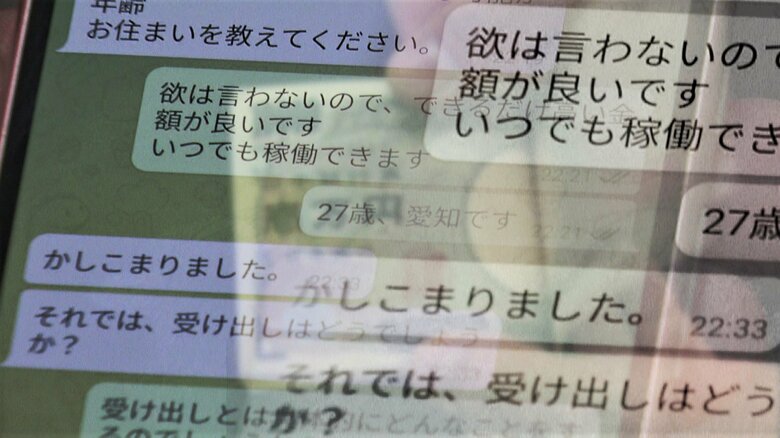 年齢
お住まいを教えてください。
欲は言わないので、できるだけ高い金
額が良いです
いつでも稼働できます
22:21
27歳、愛知です
22:21
かしこまりました。
22:33
それでは、受け出しはどうでしょう
か?
受け出しとは具体的にどんなことをす
るのでしょ
欲は言わないので
額が良いです
いつでも稼働でき
27歳
かしこまりました。
22:33
それでは、受け出しはどう
か?